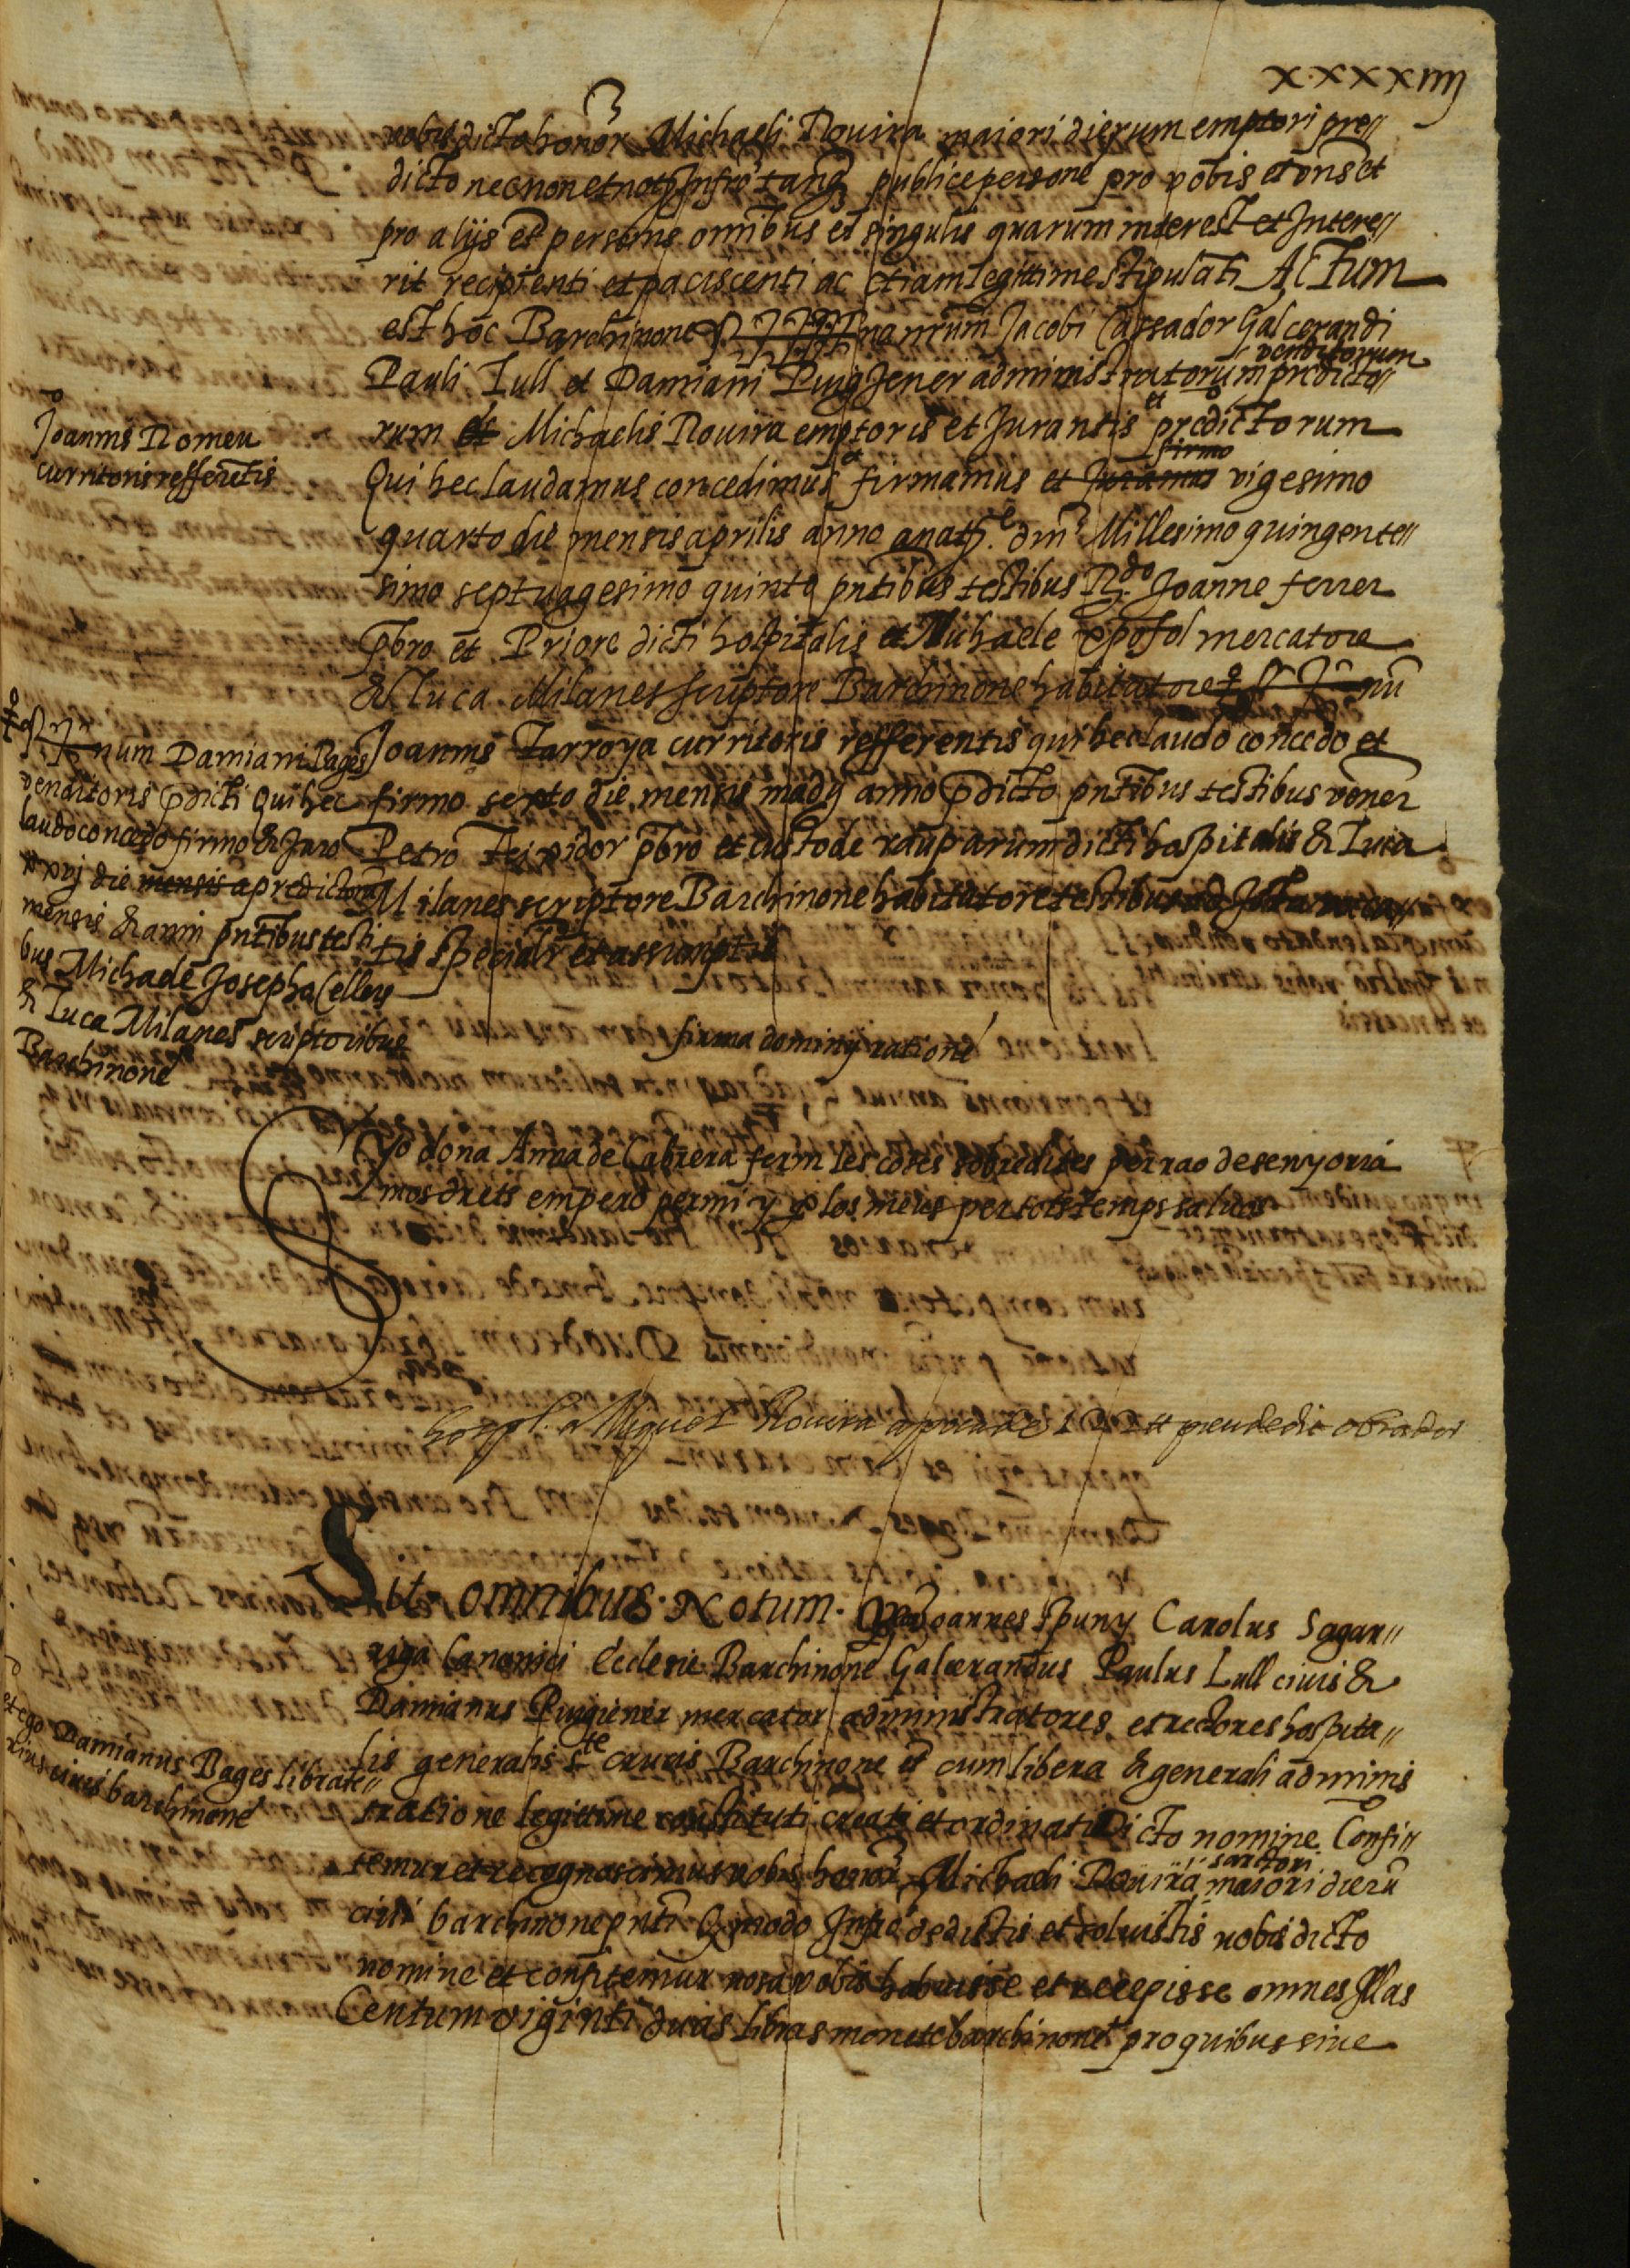 xxxxxiiij
vobis dicto honor. Michaeli Rovira maiori dierum emptori pre//
dicto necnon et notº Infrº tanq̃ publice persone pro vobis et oñs et
pro alijs eᵗ personis omĩbus et singulis quarum interest et Intere//
rit recipienti et paciscenti ac etiam legittime stipulati ACTum
est hoc Barchinone S num nrum Jacobi Cassador Galcerandi
venditorum
Pauli Lull et Damiani PuigJener administratorum predicto//
rum et Michaelis Rovira emptoris et Jurantis et predictorum
Qui hec laudamus concedimus et firmamus et Juramus firmo vigesimo
quarto die mensis aprilis anno anatᵉ. dm̃i Millesimo quingente//
simo septuagesimo quinto pñtibus testibus R.do Joanne ferrer
p̃bro et Priore dicti hospitalis et Michaele mercatore
& Luca Milanes scriptore Barchinone habitatore S num
Joannis Tarroya curritoris refferentis qui hec laudo concedo et
firmo sexto die mensis madij anno p̃dicto pñtibus testibus vener
Petro Teixidor p̃bro et custode rauparum dicti hospitalis & Luca
Milanes scriptore Barchinone habitatore testibus ad
tis specialr et assumptis
Joannis Romeu
curritoris refferẽtis
S num Damiani Pages
venditoris p̃dicti Qui hec
laudo concedo firmo & Juro
xxvj die mensis a predictorũ
mensis & anni pñtibus testi
bus Michaele Josepho Cellers
& Luca Milanes scriptoribus
Barchinone
firma dominij ratione
Yo dona Anna de Cabrera ferm les coses sobredites per rao de senyoria
mos drets empero per mi y p los meus per tots temps salvos
hospl. a Miguel Rovira apocha de 122 ₶ preu de dit obrador
Sit omnibus Notum. Qm̃ Joannes Spuny Carolus Sagar//
riga Canonici Ecclesie Barchinone Galcerandus Paulus Lull civis &
Damianus Puigiener mercator administratores et rectores hospita//
lis generalis Sᵗᵉ crucis Barchinone eᵗ cum libera & generali adminis
tratione legittime constituti creati et ordinati Dicto nomine Confi//
temur et recognoscimus vobis honor. Michaeli Rovira sartori maiori dierũ
civi barchinone pñti Q̃ modo Infrᵒ dedistis et solvistis nobis dicto
nomine et confitemur nos a vobis habuisse et recepisse omnes Illas
Centum viginti duas libras monete barchinone pro quibus sive
et ego Damianus Pages librate//
rius civis barchinone